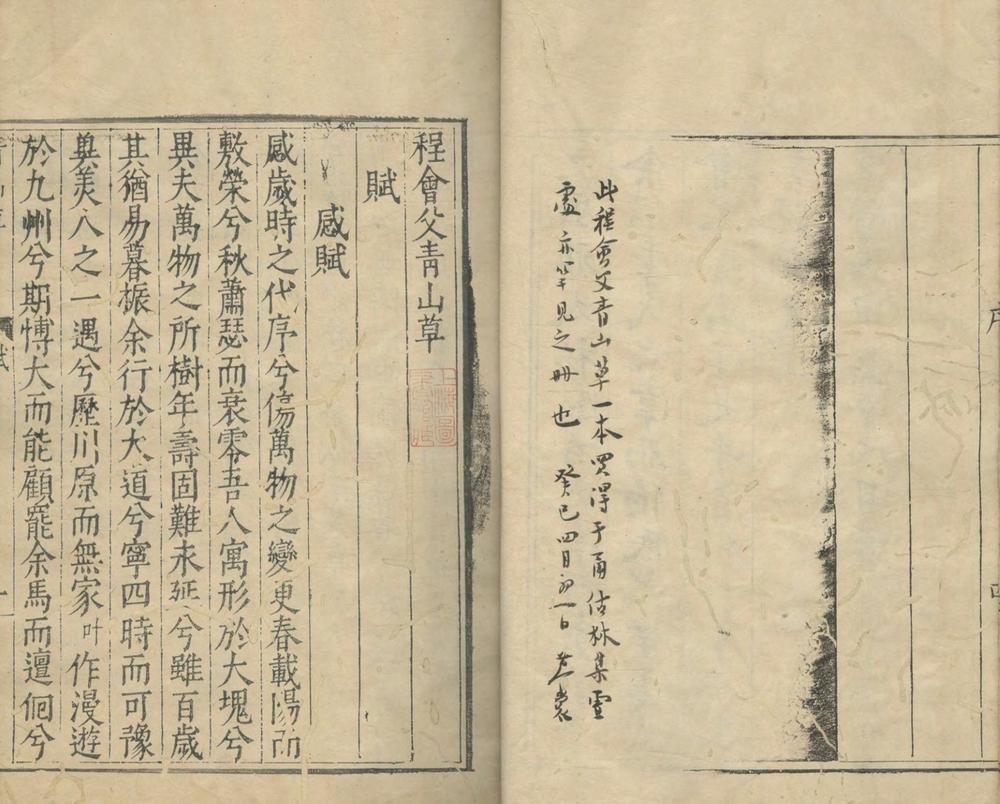 序
四
此程會父青山草一本買得于甬估林集虛
處亦罕見之冊也 癸巳四月初一日 黃裳
程會父青山草
上海圖書館藏
賦
感賦
感歲時之代序兮傷萬物之變更春載陽而
敷榮兮秋蕭瑟而衰零吾人寓形於大塊兮
異夫萬物之所樹年壽固難未延兮雖百歲
其猶易暮振余行於大道兮寧四時而可豫
兾美人之一遇兮歷川原而無家叶作漫遊
於九州兮期博大而能顧罷余馬而邅佪兮
賦
一